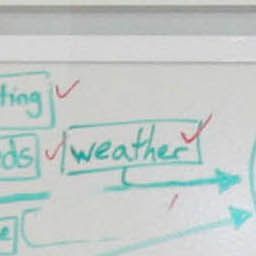 ting
ds weather
e